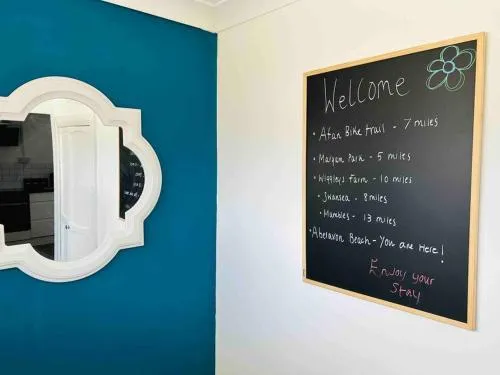 Welcome
• Afan Bike trail - 7 miles
• Margam Park - 5 miles
• Wiggleys Farm - 10 miles
• Swansea - 8 miles
• Mumbles - 13 miles
• Aberavon Beach - You are Here!
Enjoy your
Stay